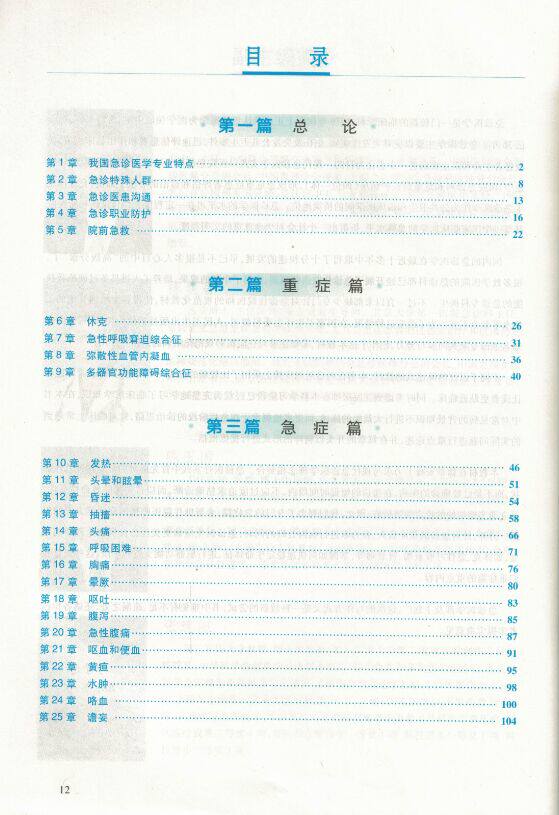 目 录
第一篇 总 论
第 1 章 我国急诊医学专业特点 2
第 2 章 急诊特殊人群 8
第 3 章 急诊医患沟通 13
第 4 章 急诊职业防护 16
第 5 章 院前急救 22
第二篇 重 症 篇
第 6 章 休克 26
第 7 章 急性呼吸窘迫综合征 31
第 8 章 弥散性血管内凝血 36
第 9 章 多器官功能障碍综合征 40
第三篇 急 症 篇
第 10 章 发热 46
第 11 章 头晕和眩晕 51
第 12 章 昏迷 54
第 13 章 抽搐 58
第 14 章 头痛 66
第 15 章 呼吸困难 71
第 16 章 胸痛 76
第 17 章 晕厥 80
第 18 章 呕吐 83
第 19 章 腹泻 85
第 20 章 急性腹痛 87
第 21 章 呕血和便血 91
第 22 章 黄疸 95
第 23 章 水肿 98
第 24 章 咯血 100
第 25 章 谵妄 104
12